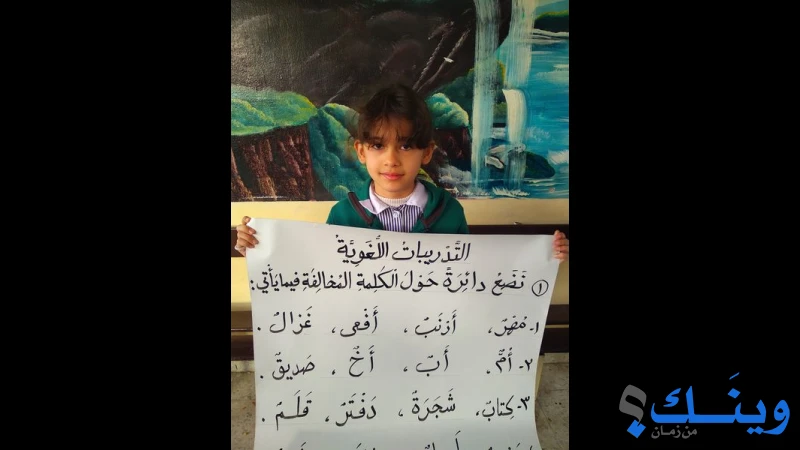 التَّدْرِيباتُ اللُّغَوِيَّةُ
١ نَضَعُ دائِرَةً حَوْلَ الْكَلِمَةِ المُخالِفَةِ فيما يَأْتي:
١- مُهْرٌ، أَرْنَبٌ، أَفْعى، غَزالٌ.
٢- أُمٌّ، أَبٌ، أَخٌ، صَديقٌ.
٣- كِتابٌ، شَجَرَةٌ، دَفْتَرٌ، قَلَمٌ.
وينَـك؟
من زمـان